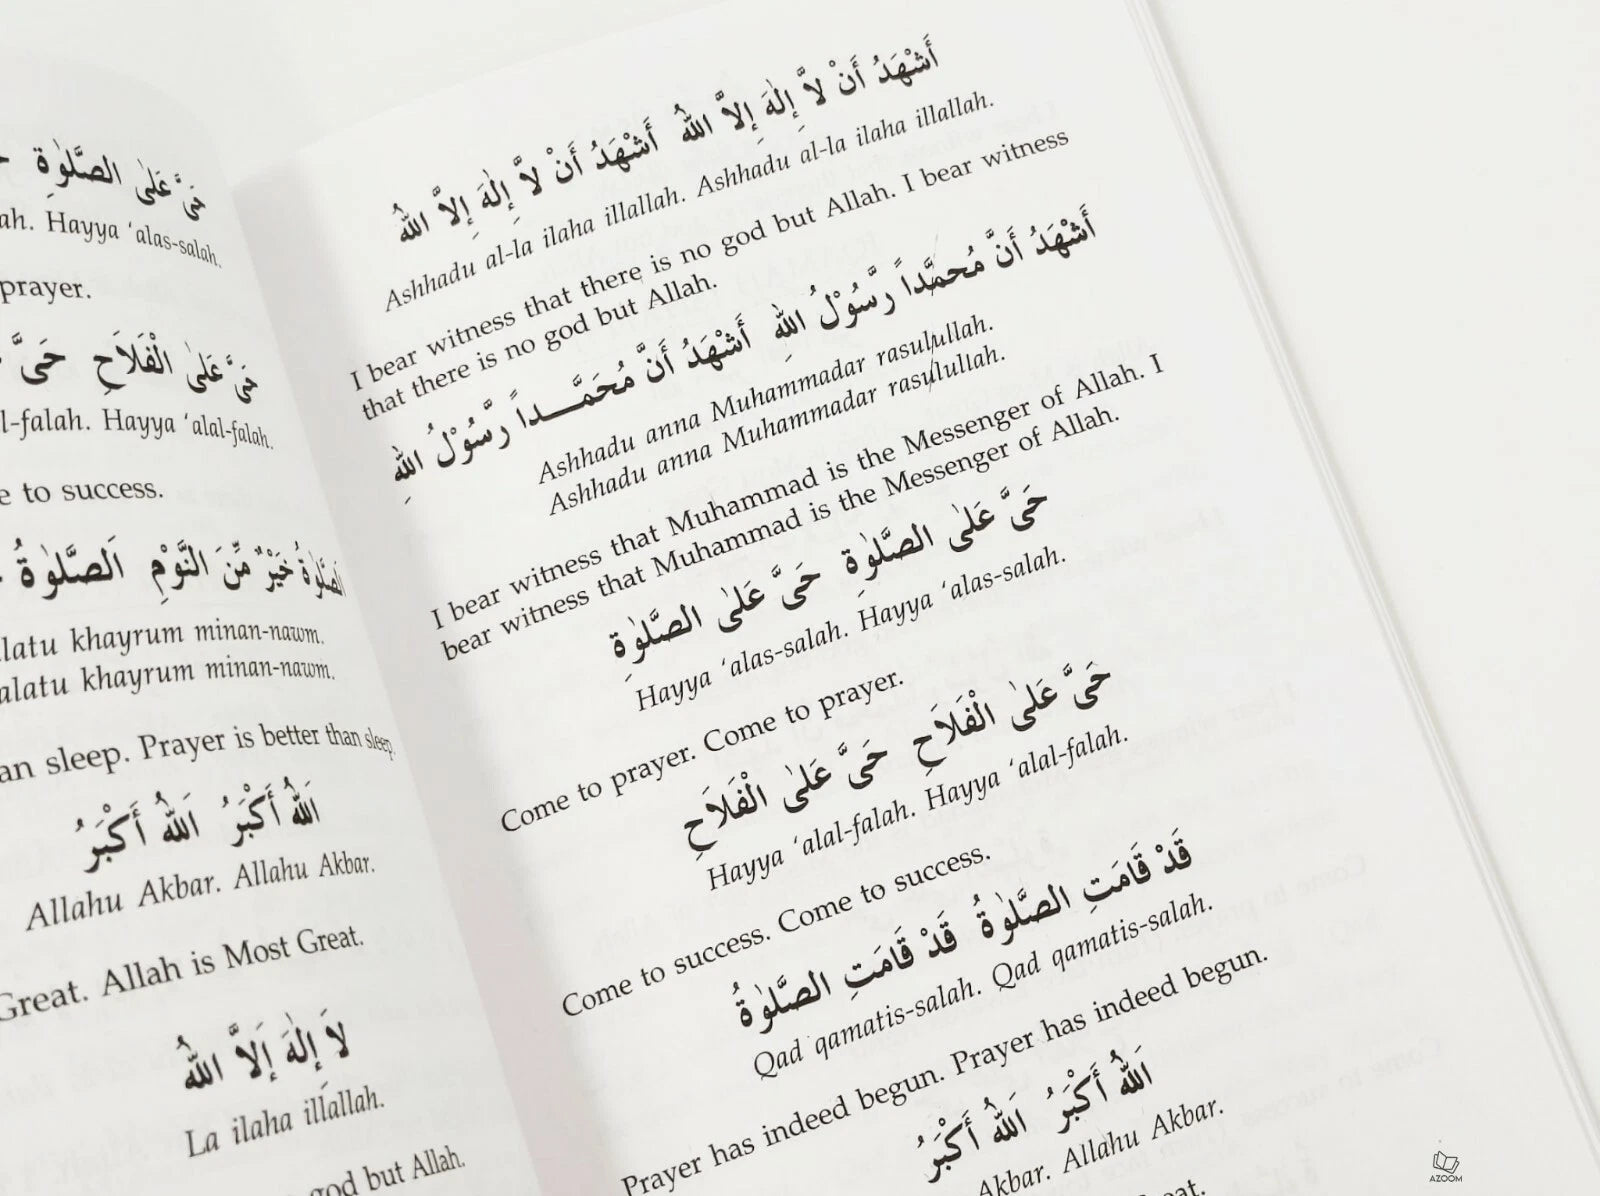 حَىَّ عَلَى الصَّلٰوةِ
Hayya ‘alas-salah.
prayer.
حَىَّ عَلَى الْفَلاَحِ حَىَّ
l-falah. Hayya ‘alal-falah.
to success.
اَلصَّلٰوةُ خَيْرٌ مِّنَ النَّوْمِ اَلصَّلٰوةُ
latu khayrum minan-nawm.
alatu khayrum minan-nawm.
an sleep. Prayer is better than sleep.
اَللهُ أَكْبَرُ اَللهُ أَكْبَرُ
Allahu Akbar. Allahu Akbar.
Great. Allah is Most Great.
لاَ إِلٰهَ إَلاَّ اللهُ
La ilaha illallah.
god but Allah.
أَشْهَدُ أَنْ لاَّ إِلٰهَ إِلاَّ اللهُ أَشْهَدُ أَنْ لاَّ إِلٰهَ إِلاَّ اللهُ
Ashhadu al-la ilaha illallah. Ashhadu al-la ilaha illallah.
I bear witness that there is no god but Allah. I bear witness
that there is no god but Allah.
أَشْهَدُ أَنَّ مُحَمَّداً رَّسُوْلُ اللهِ أَشْهَدُ أَنَّ مُحَمَّداً رَّسُوْلُ اللهِ
Ashhadu anna Muhammadar rasulullah.
Ashhadu anna Muhammadar rasulullah.
I bear witness that Muhammad is the Messenger of Allah. I
bear witness that Muhammad is the Messenger of Allah.
حَىَّ عَلٰى الصَّلٰوةِ حَىَّ عَلٰى الصَّلٰوةِ
Hayya ‘alas-salah. Hayya ‘alas-salah.
Come to prayer. Come to prayer.
حَىَّ عَلٰى الْفَلاَحِ حَىَّ عَلٰى الْفَلاَحِ
Hayya ‘alal-falah. Hayya ‘alal-falah.
Come to success. Come to success.
قَدْ قَامَتِ الصَّلٰوةُ قَدْ قَامَتِ الصَّلٰوةُ
Qad qamatis-salah. Qad qamatis-salah.
Prayer has indeed begun. Prayer has indeed begun.
اَللهُ أَكْبَرُ اَللهُ أَكْبَرُ
Akbar. Allahu Akbar.
AZOOM